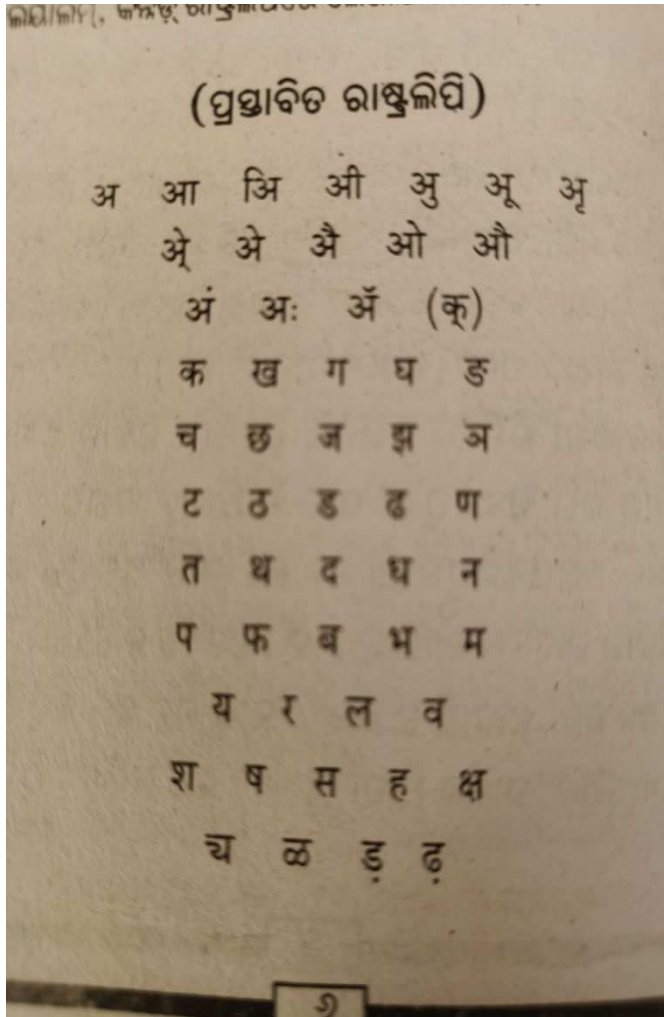 (ପ୍ରସ୍ତାବିତ ରାଷ୍ଟ୍ରଲିପି)
अ आ अि अी अु अू अृ
अ्रे अे अै ओ औ
अं अः अॅ (क्)
क ख ग घ ङ
च छ ज झ ञ
ट ठ ड ढ ण
त थ द ध न
प फ ब भ म
य र ल व
श ष स ह क्ष
ळ ड़ ढ़
୬